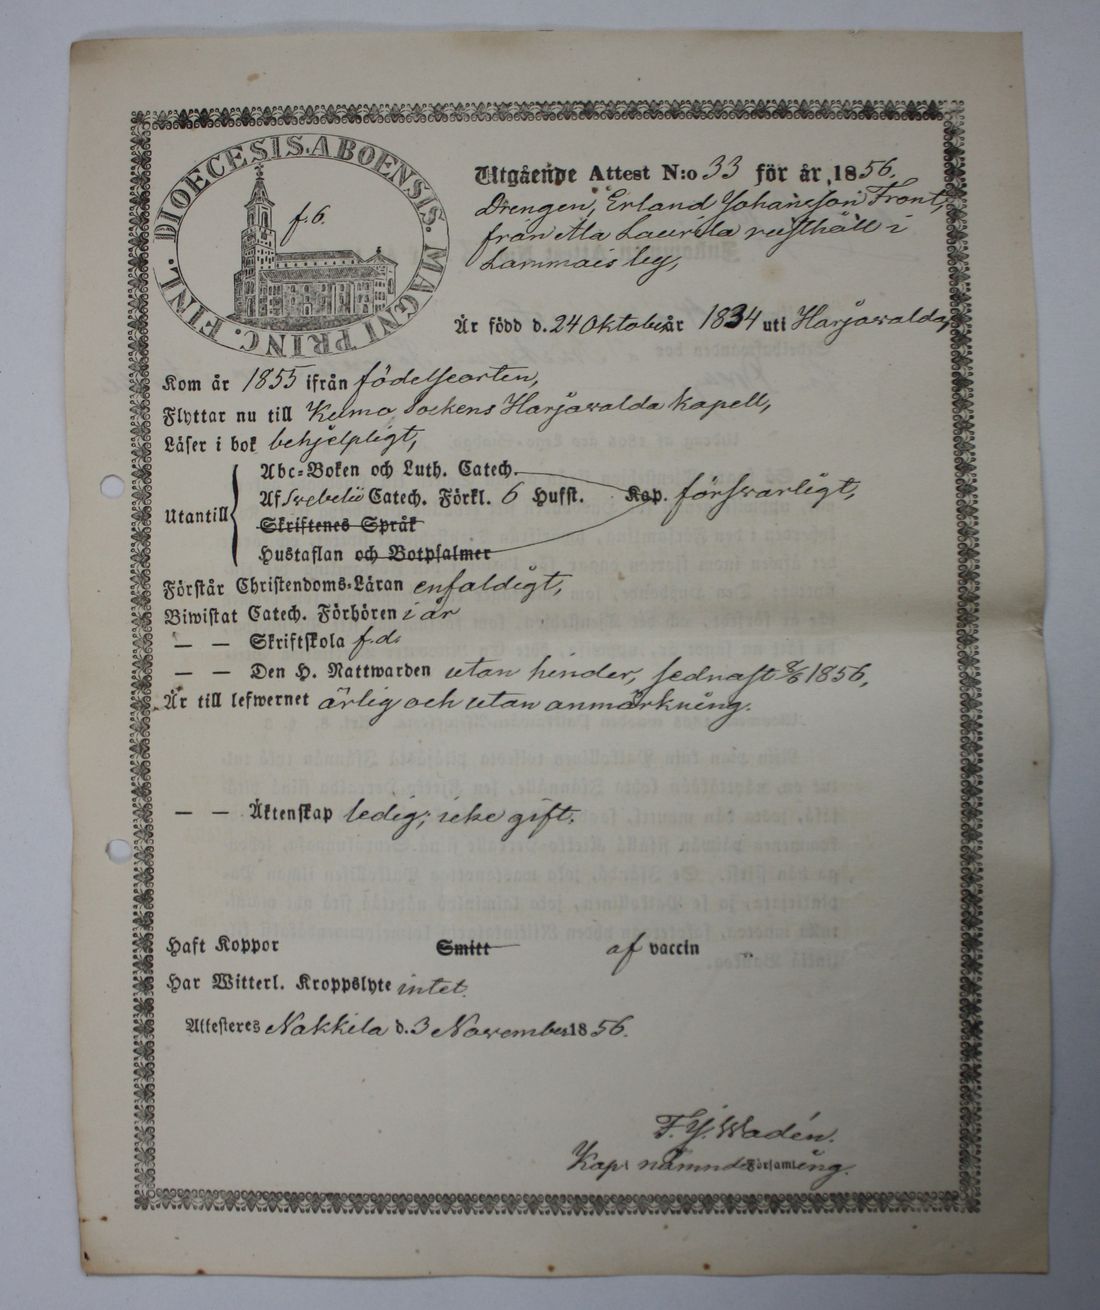 DIOECESIS. ABOENSIS. MAGNI PRINC. FINL.
f. 6.
Utgående Attest N:o 33 för år 1856.
Drengen, Erland Johansson Front,
från Ala Laurila rusthåll i
Lammais by,
Är född d. 24 Oktober år 1834 uti Harjawalda,
Kom år 1855 ifrån födelseorten,
Flyttar nu till Kumo Sockens Harjawalda Kapell,
Läser i bok behjelpligt,
Utantill
Abc-Boken och Luth. Catech.
Af Swebelii Catech. Förkl. 6 Hufst. Kap. förswarligt,
Skriftenes Språk
Hustaflan och Botpsalmer
Förstår Christendoms-Läran enfaldigt,
Biwistat Catech. Förhören i år
— — Skriftskola f.d.
— — Den H. Nattwarden utan hinder, sednast 1856,
Är till lefwernet ärlig och utan anmärkning.
— — Äktenskap ledig; icke gift.
Haft Koppor Smitt af vaccin
Har Witterl. Kroppslyte intet.
Attesteres Nakkila d. 3 November 1856.
F. J. Wadén.
Kap. i nämnde Församling.